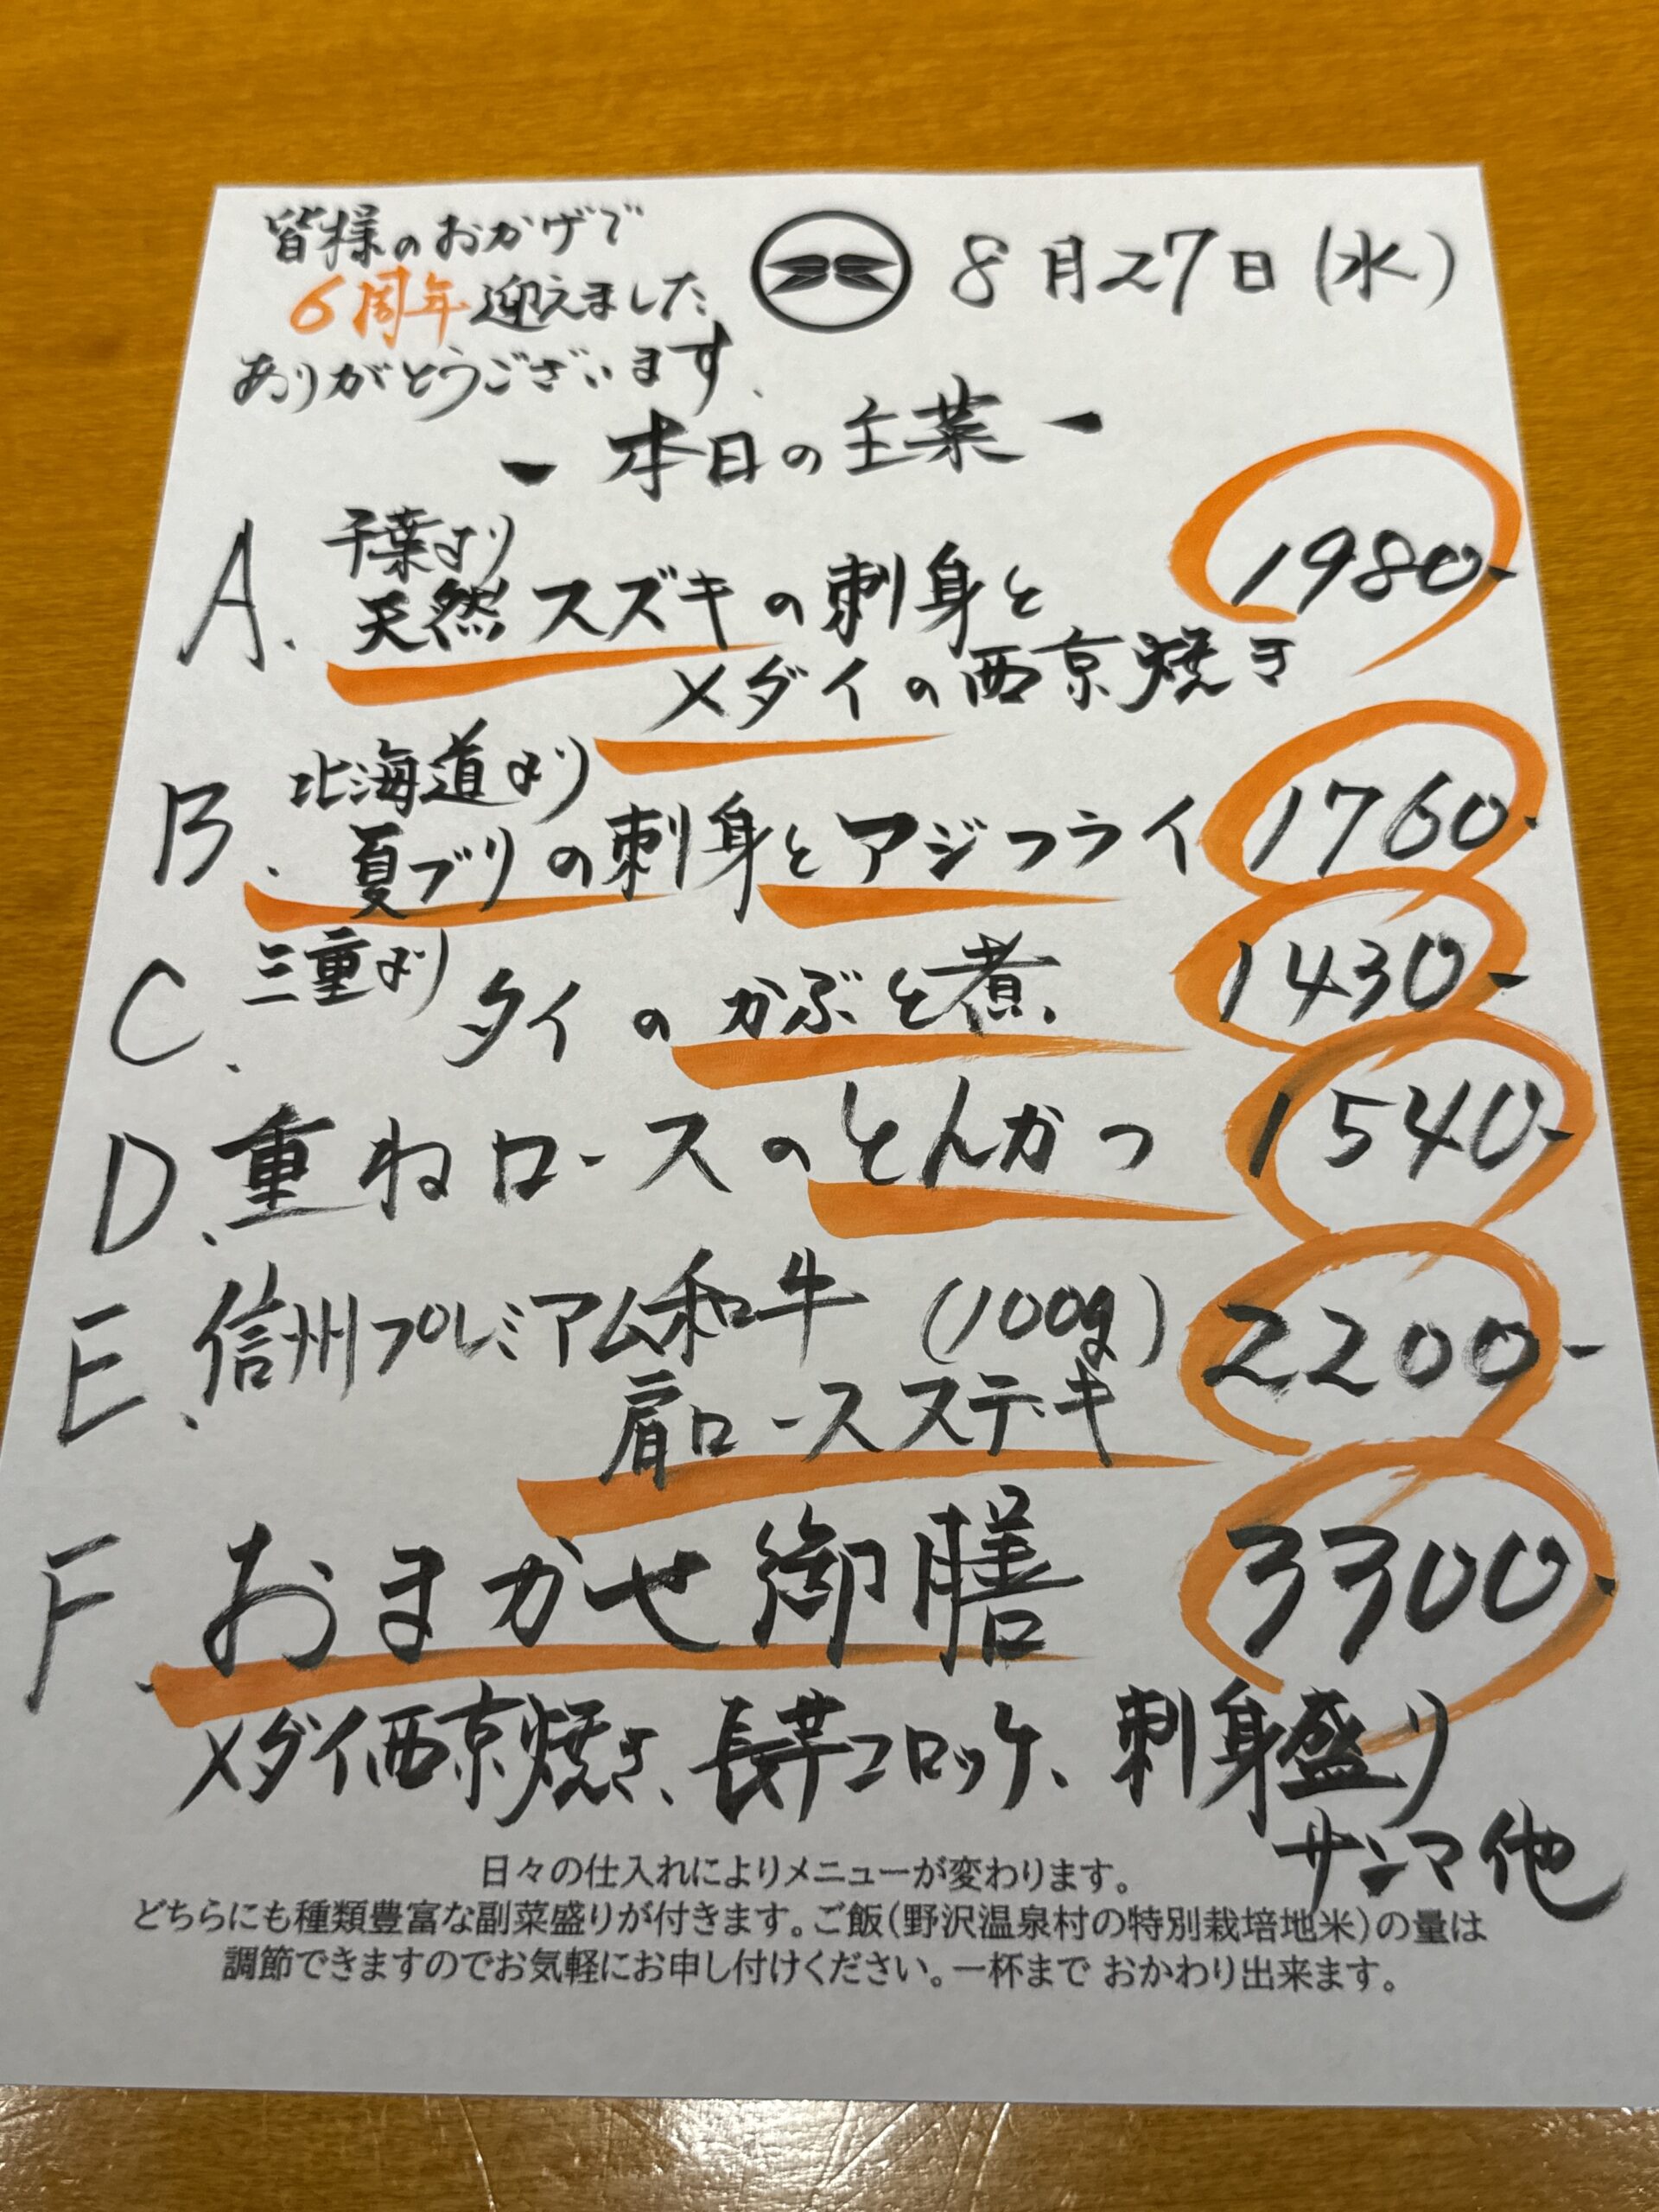 皆様のおかげで
6周年迎えました
ありがとうございます。
8月27日(水)
- 本日の主菜 -
A. 千葉より
天然スズキの刺身と
メダイの西京焼き
1980-
B. 北海道より
夏ブリの刺身とアジフライ 1760-
C. 三重より
タイのかぶと煮 1430-
D. 重ねロースのとんかつ 1540-
E. 信州プレミアム和牛 (100g)
肩ロースステーキ
2200-
F. おまかせ御膳 3300-
メダイ西京焼き、長芋コロッケ、刺身盛り
サンマ他
日々の仕入れによりメニューが変わります。
どちらにも種類豊富な副菜盛りが付きます。ご飯(野沢温泉村の特別栽培地米)の量は
調節できますのでお気軽にお申し付けください。一杯まで おかわり出来ます。